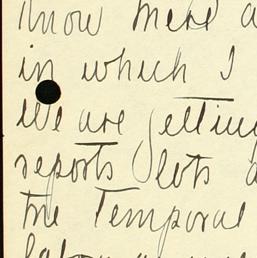 know here a
in which I
We are getting
reports lots a
the Temporal
labor